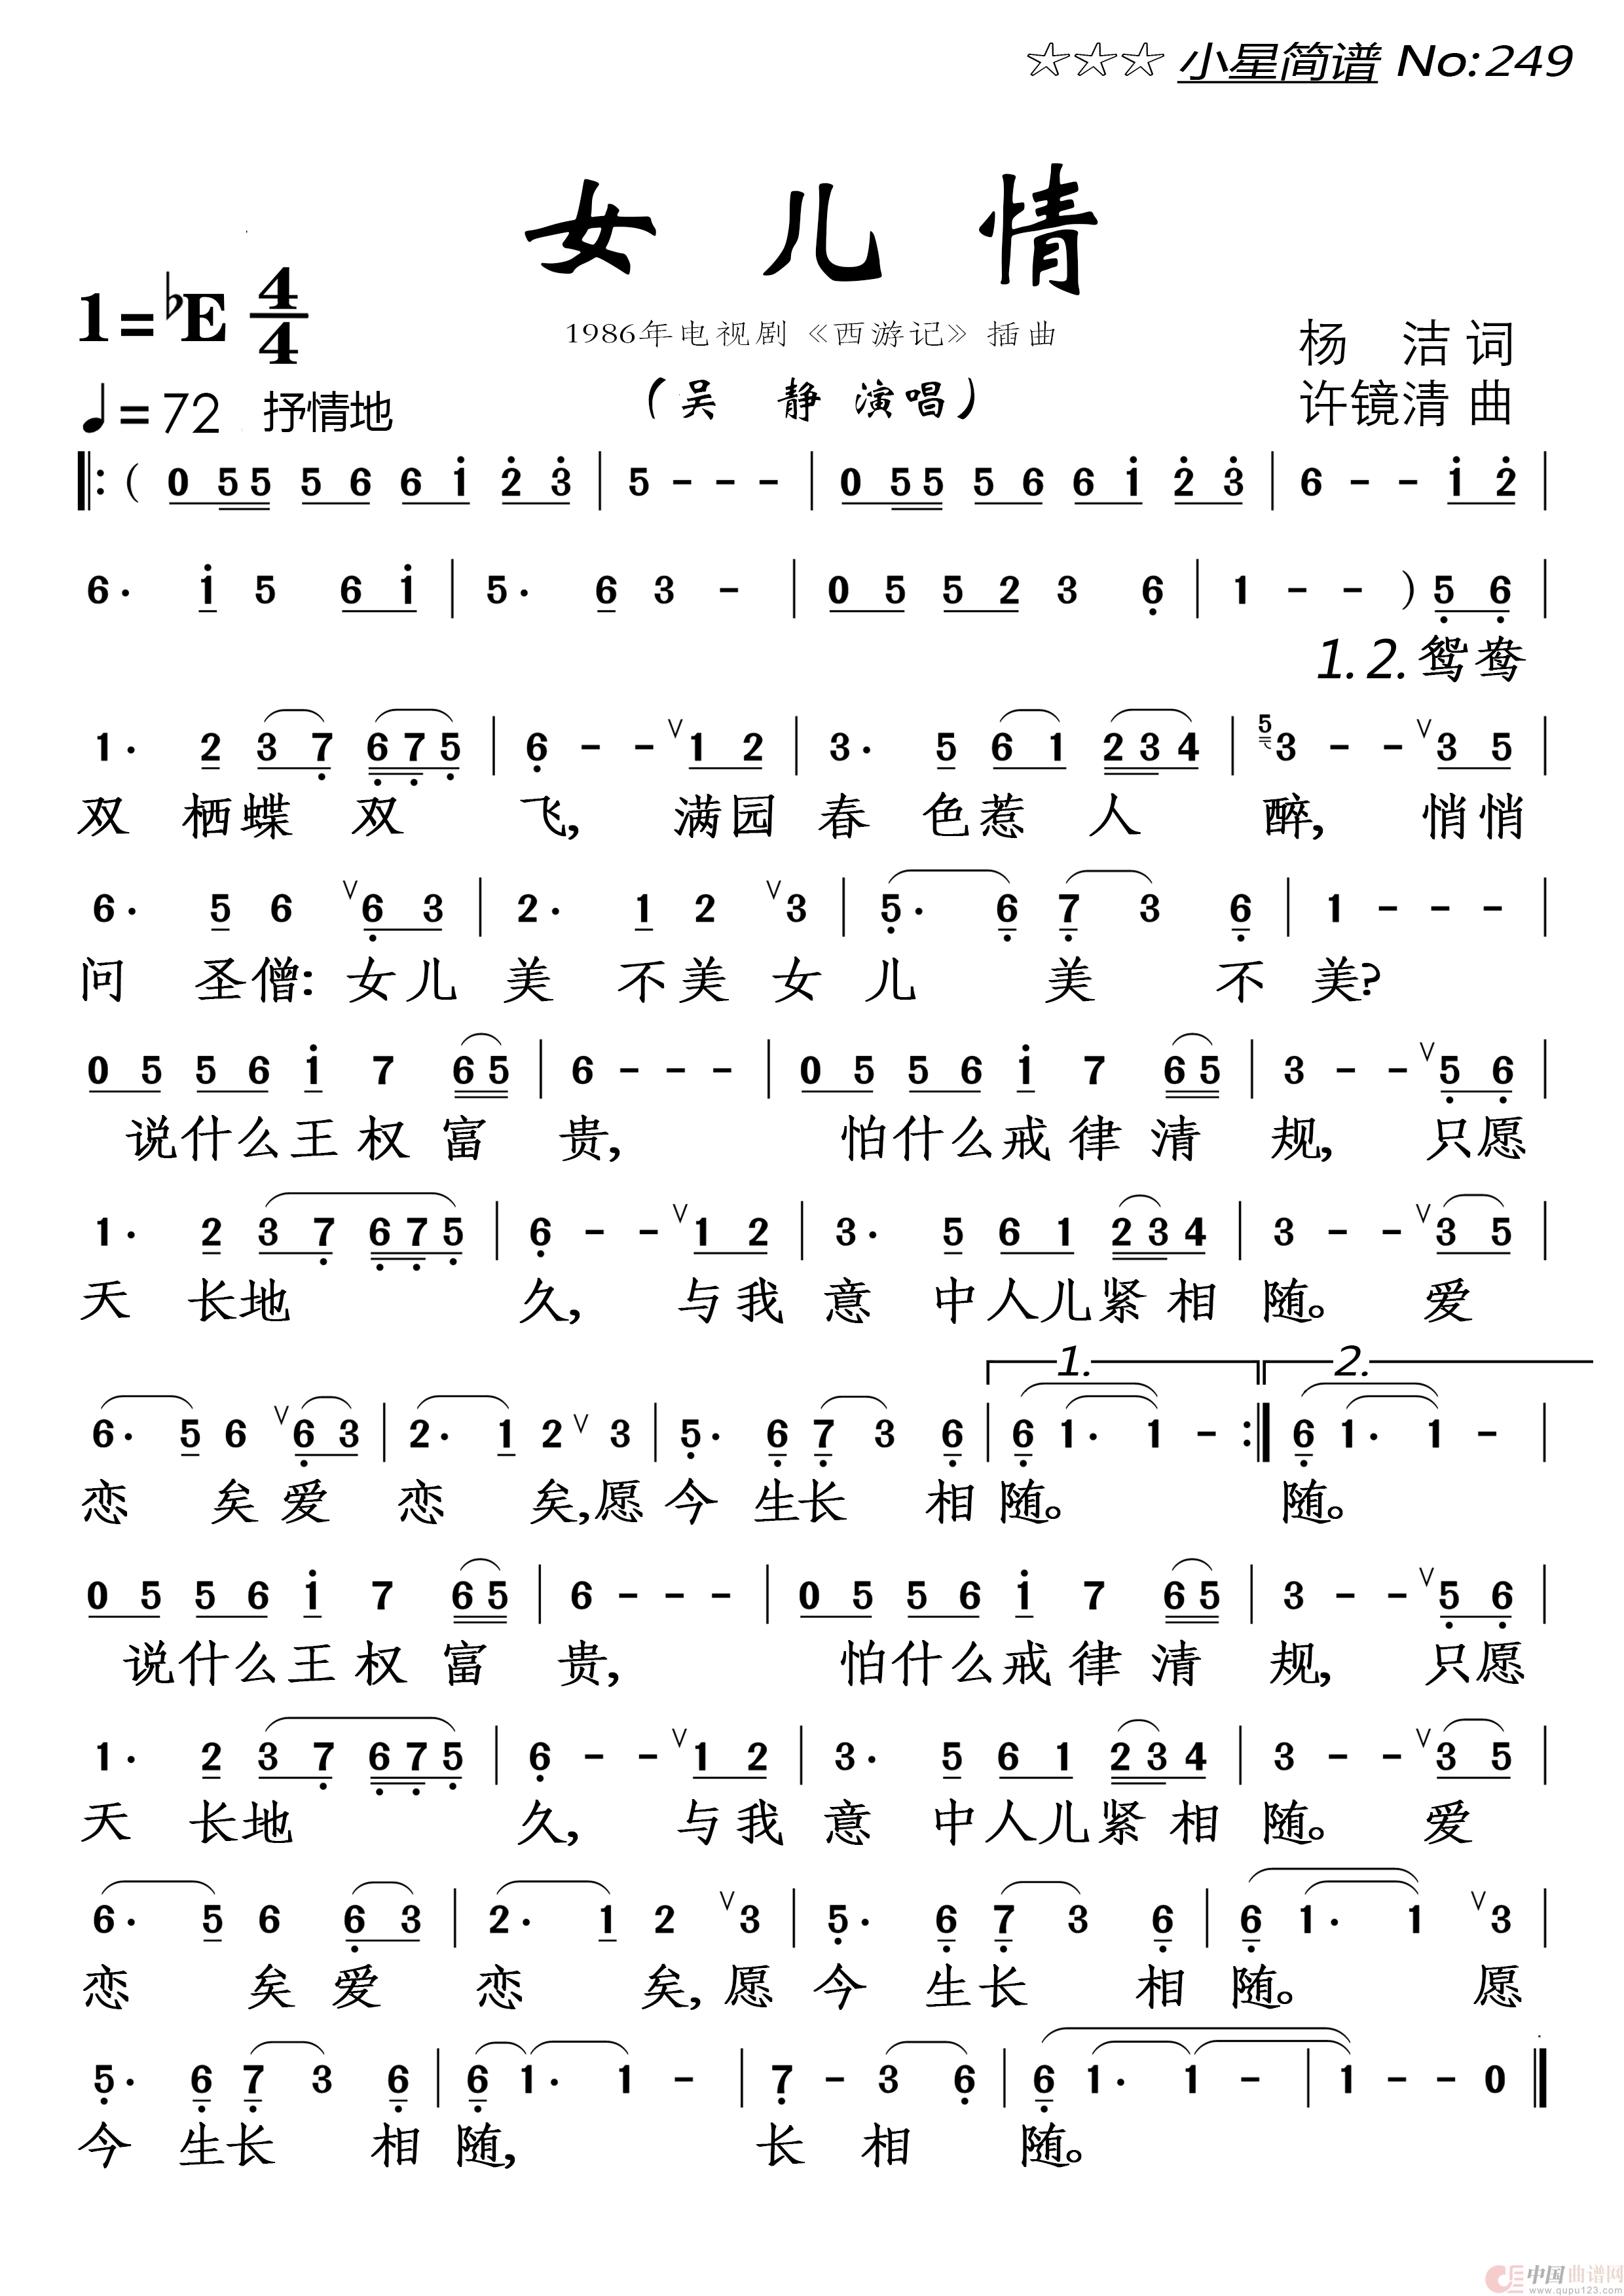 ☆☆☆ 小星简谱 No:249
女儿情
1=♭E 4/4
1986年电视剧《西游记》插曲
杨 洁 词
♩=72 抒情地
(吴 静 演唱)
许镜清 曲
‖: ( 0 5 5 5 6 6 1 2 3 | 5 - - - | 0 5 5 5 6 6 1 2 3 | 6 - - 1 2 |
6 · 1 5 6 1 | 5 · 6 3 - | 0 5 5 2 3 6 | 1 - - ) 5 6 |
1. 2. 鸳鸯
1 · 2 3 7 6 7 5 | 6 - - ∨ 1 2 | 3 · 5 6 1 2 3 4 | 5 3 - - ∨ 3 5 |
双 栖蝶 双 飞, 满园 春 色惹 人 醉, 悄悄
6 · 5 6 ∨ 6 3 | 2 · 1 2 ∨ 3 | 5 · 6 7 3 6 | 1 - - - |
问 圣僧: 女儿 美 不美 女 儿 美 不 美?
0 5 5 6 1 7 6 5 | 6 - - - | 0 5 5 6 1 7 6 5 | 3 - - ∨ 5 6 |
说什么王 权 富 贵, 怕什么戒 律 清 规, 只愿
1 · 2 3 7 6 7 5 | 6 - - ∨ 1 2 | 3 · 5 6 1 2 3 4 | 3 - - ∨ 3 5 |
天 长地 久, 与我 意 中人儿紧 相 随。 爱
1. 2.
6 · 5 6 ∨ 6 3 | 2 · 1 2 ∨ 3 | 5 · 6 7 3 6 | 6 1 · 1 - :‖ 6 1 · 1 - |
恋 矣爱 恋 矣,愿 今 生长 相 随。 随。
0 5 5 6 1 7 6 5 | 6 - - - | 0 5 5 6 1 7 6 5 | 3 - - ∨ 5 6 |
说什么王 权 富 贵, 怕什么戒 律 清 规, 只愿
1 · 2 3 7 6 7 5 | 6 - - ∨ 1 2 | 3 · 5 6 1 2 3 4 | 3 - - ∨ 3 5 |
天 长地 久, 与我 意 中人儿紧 相 随。 爱
6 · 5 6 6 3 | 2 · 1 2 ∨ 3 | 5 · 6 7 3 6 | 6 1 · 1 ∨ 3 |
恋 矣 爱 恋 矣, 愿 今 生长 相 随。 愿
5 · 6 7 3 6 | 6 1 · 1 - | 7 - 3 6 | 6 1 · 1 - | 1 - - 0 ‖
今 生长 相 随, 长 相 随。
中国曲谱网
www.qupu123.com